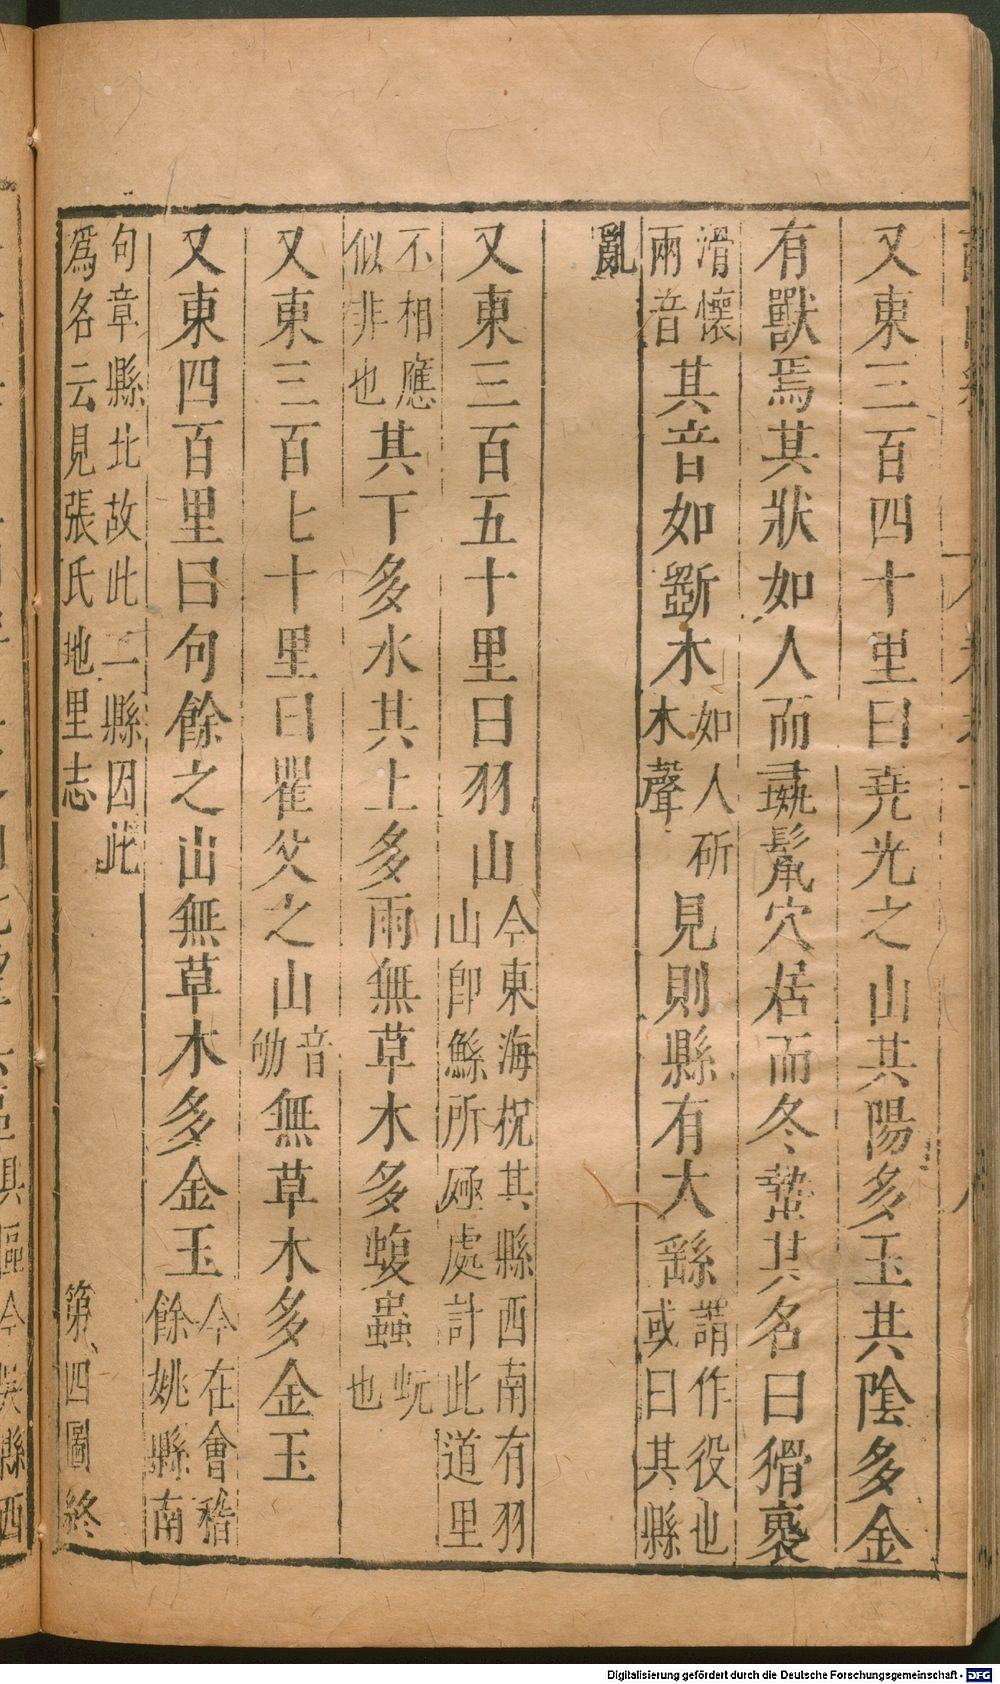 又東三百四十里曰堯光之山其陽多玉其陰多金
有獸焉其狀如人而彘鬣穴居而冬蟄其名曰猾褢
滑懷
兩音
其音如斲木
如人斫
木聲
見則縣有大繇
謂作役也
或曰其縣
亂
又東三百五十里曰羽山
今東海柷其縣西南有羽
山卽鯀所殛處計此道里
不相應
似非也
其下多水其上多雨無草木多蝮蟲
蚖
也
又東三百七十里曰瞿父之山
音
劬
無草木多金玉
又東四百里曰句餘之山無草木多金玉
今在會稽
餘姚縣南
句章縣北故此二縣因此
爲名云見張氏地里志
第四圖終
Digitalisierung gefördert durch die Deutsche Forschungsgemeinschaft - DFG